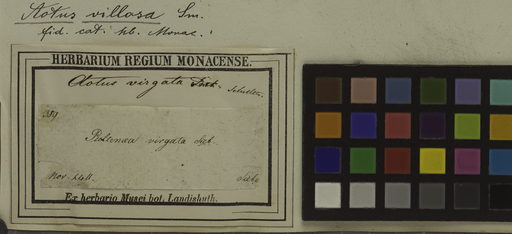 Aotus villosa Sm.
fid. cat. hb. Monac.
HERBARIUM REGIUM MONACENSE.
Aotus virgata
387
Pultenaea virgata Sieb.
Nov. Holl.
Sieb.
Ex herbario Musei bot. Landishuth.